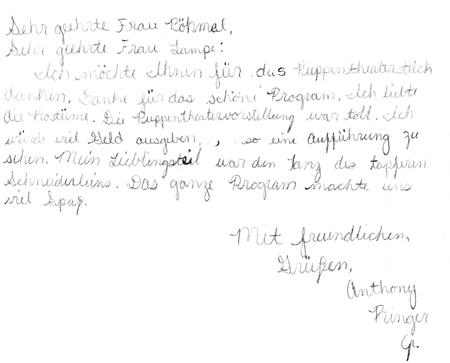 Sehr geehrte Frau Röhmel,
Sehr geehrte Frau Lampe:
Ich möchte Ihnen für das Puppentheaterstück
danken. Danke für das schöne Program. Ich liebte
die Kostüme. Die Puppentheatervorstellung war toll. Ich
würde viel Geld ausgeben, , so eine Aufführung zu
sehen. Mein Lieblingsteil war den Tanz des tapferen
Schneiderleins. Das ganze Program machte uns
viel Spaß.
Mit freundlichen,
Grüßen,
Anthony